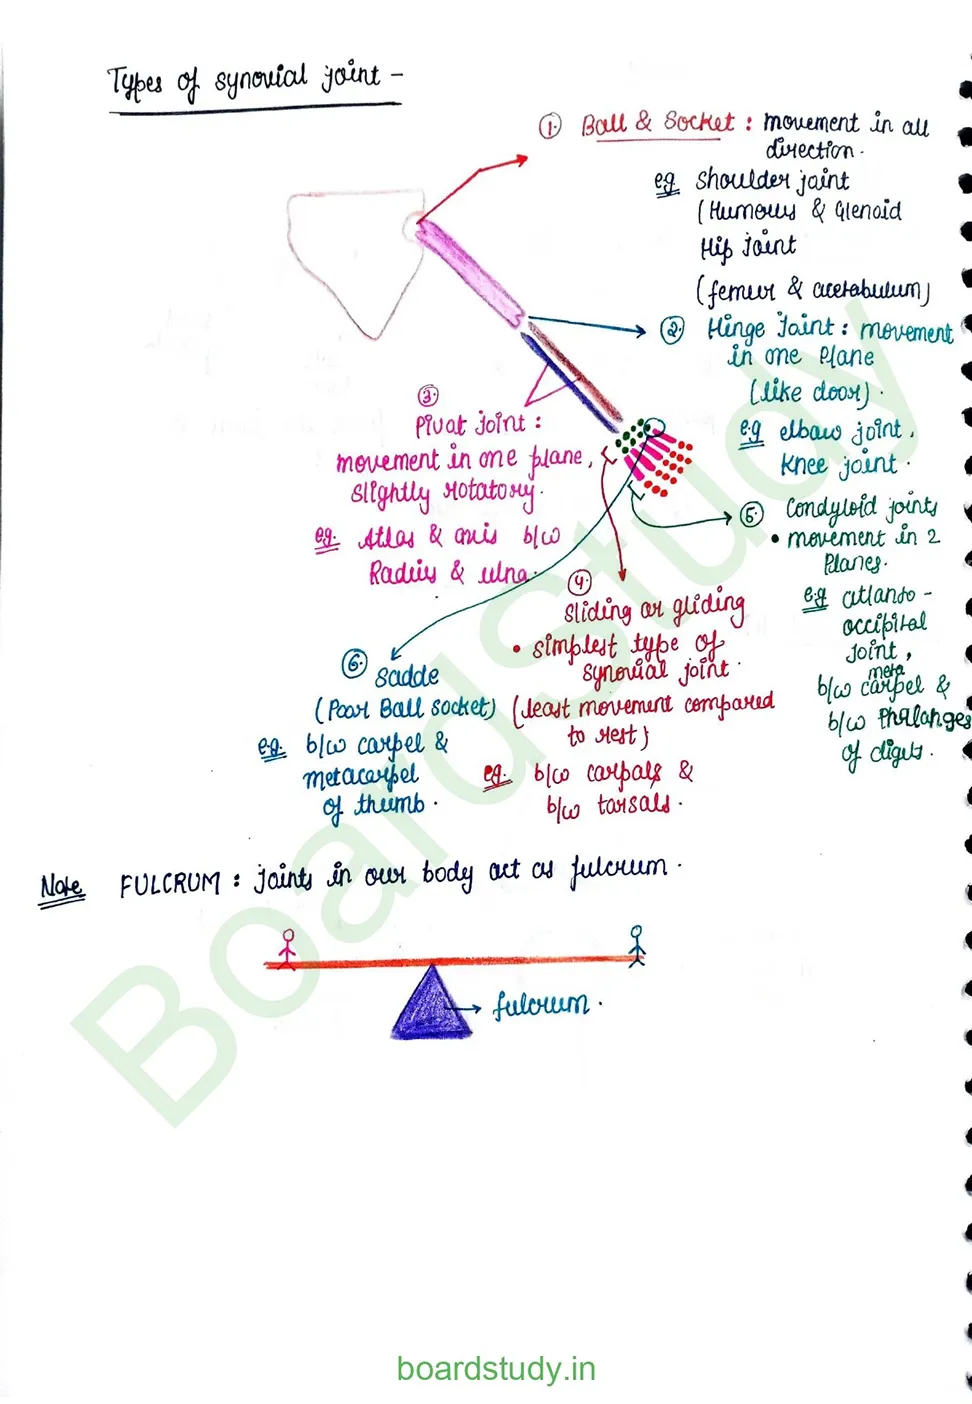 Types of synovial joint -
① Ball & Socket : movement in all
direction.
eg shoulder joint
(Humerus & Glenoid
Hip joint
(femur & acetabulum)
② Hinge Joint : movement
in one Plane
(like door).
e.g elbow joint,
Knee joint.
③
Pivot joint :
movement in one plane,
slightly rotatory.
eg. Atlas & axis b/w
Radius & ulna.
④
Sliding or gliding
• simplest type of
synovial joint.
(least movement compared
to rest)
eg. b/w carpals &
b/w tarsals.
⑤ Condyloid joints
• movement in 2
Planes.
e.g atlanto -
occipital
Joint,
meta
b/w carpel &
b/w Phalanges
of digits.
⑥ Sadde
(Poor Ball Socket)
e.g. b/w carpel &
metacarpel
of thumb.
Note FULCRUM : Joints in our body act as fulcrum.
fulcrum.
BoardStudy
boardstudy.in